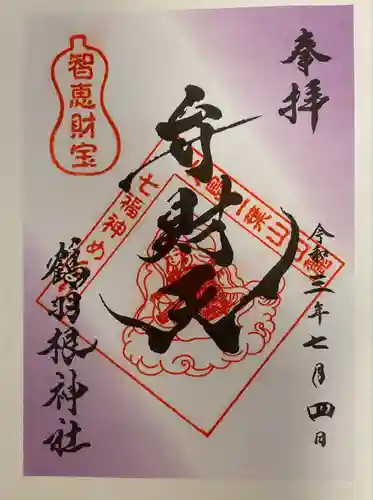 奉拝
智恵財宝
弁財天
二葉山山麓
七福神め
令和三年七月四日
鶴羽根神社